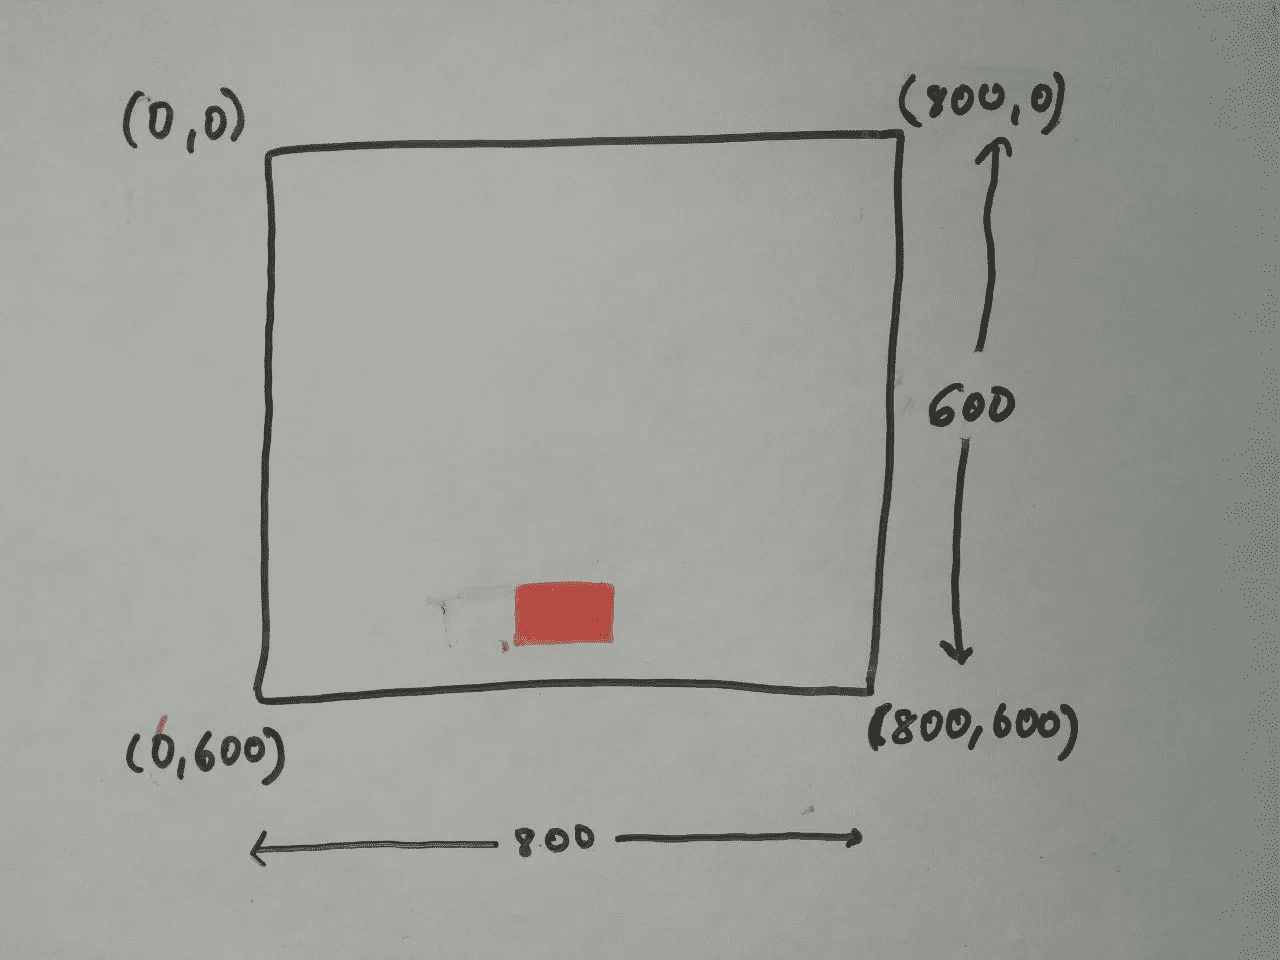 (0,0)
(800,0)
600
(0,600)
(800,600)
800